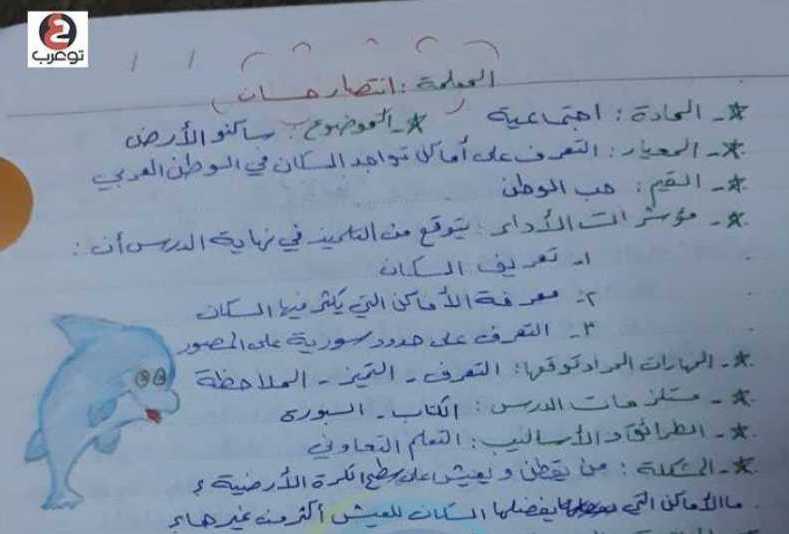 توعرب
المعلمة: انتصار حسان
*- المادة: اجتماعية *- الموضوع: ساكنو الأرض
*- المعيار: التعرف على أماكن تواجد السكان في الوطن العربي
*- القيم: حب الوطن
*- مؤشرات الأداء: يتوقع من التلميذ في نهاية الدرس أن:
١- تعريف السكان
٢- معرفة الأماكن التي يكثر فيها السكان
٣- التعرف على حدود سورية على المصور
*- المهارات المراد توقعها: التعرف - التميز - الملاحظة
*- مستلزمات الدرس: الكتاب - السبورة
*- الطرائق والأساليب: التعلم التعاوني
*- المشكلة: من يقطن ويعيش على سطح الكرة الأرضية ؟
ما الأماكن التي يفضلها السكان للعيش أكثر من غيرها؟